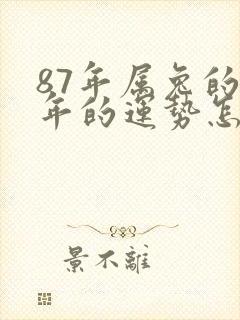 87年属兔的
年的运势怎
景不離